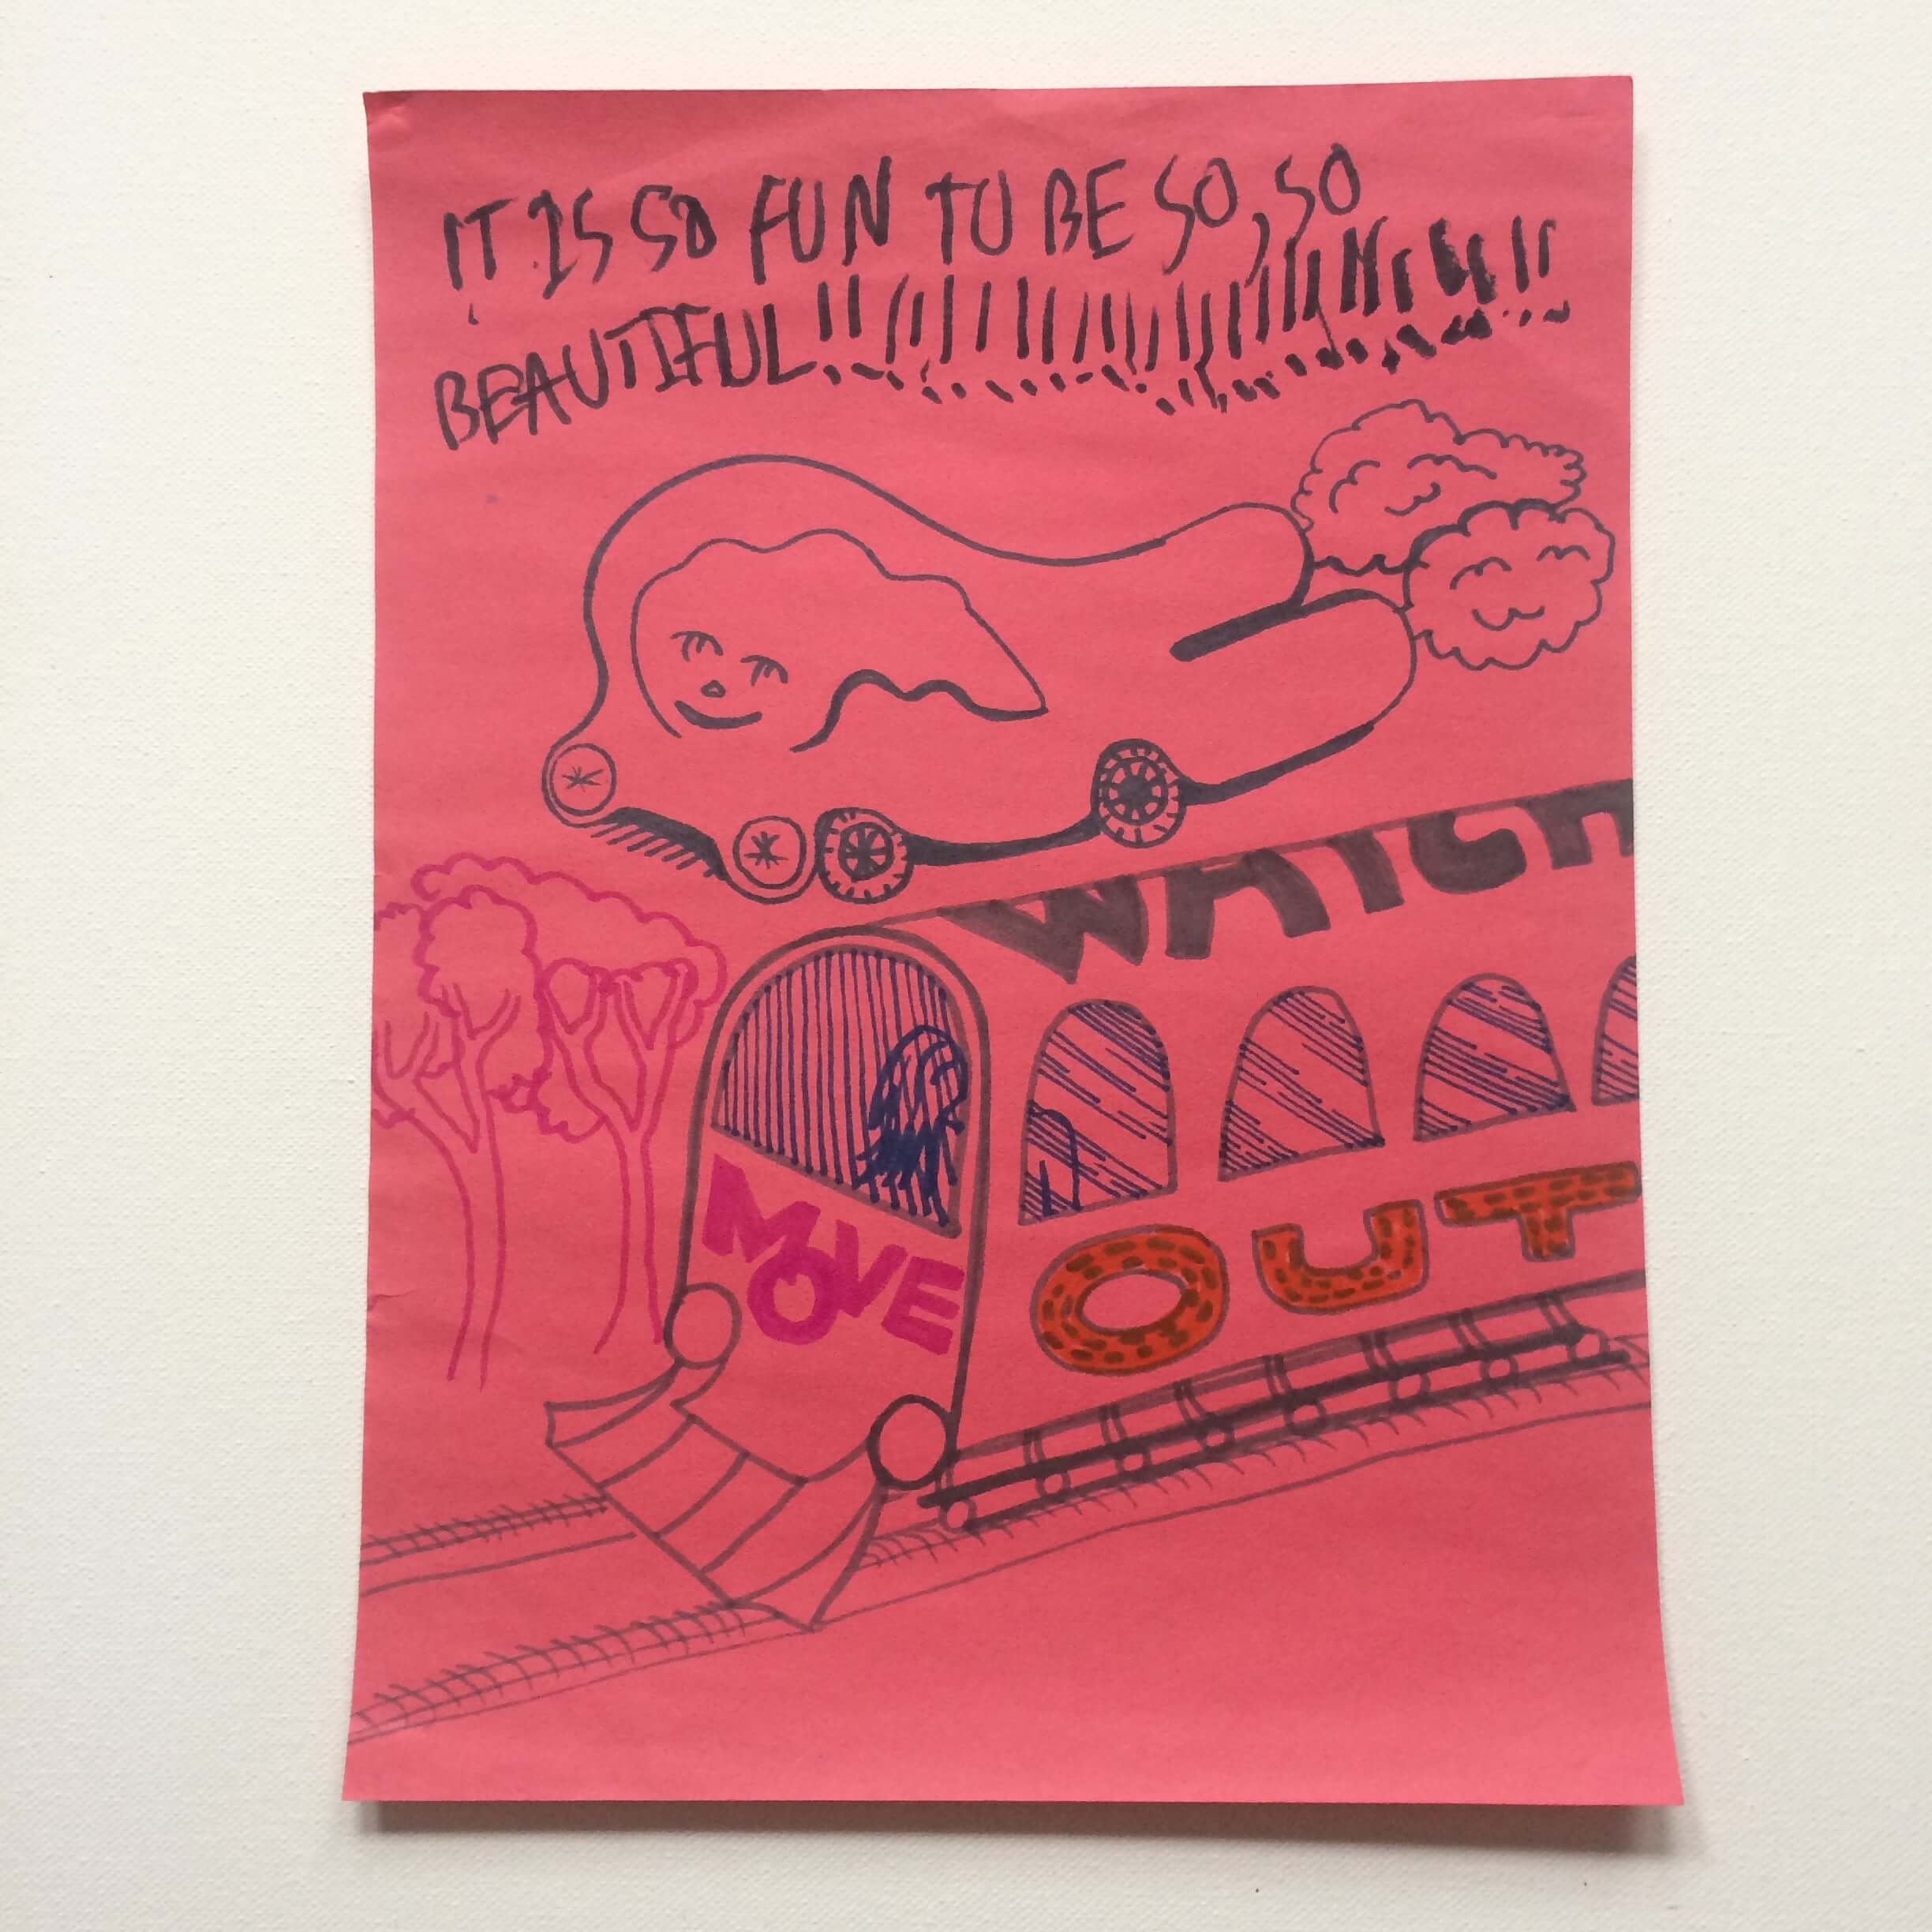 IT IS SO FUN TO BE SO, SO
BEAUTIFUL!!!!!!!!!!!!!!!!!!!!!!!!!!
WATCH
MOVE
OUT